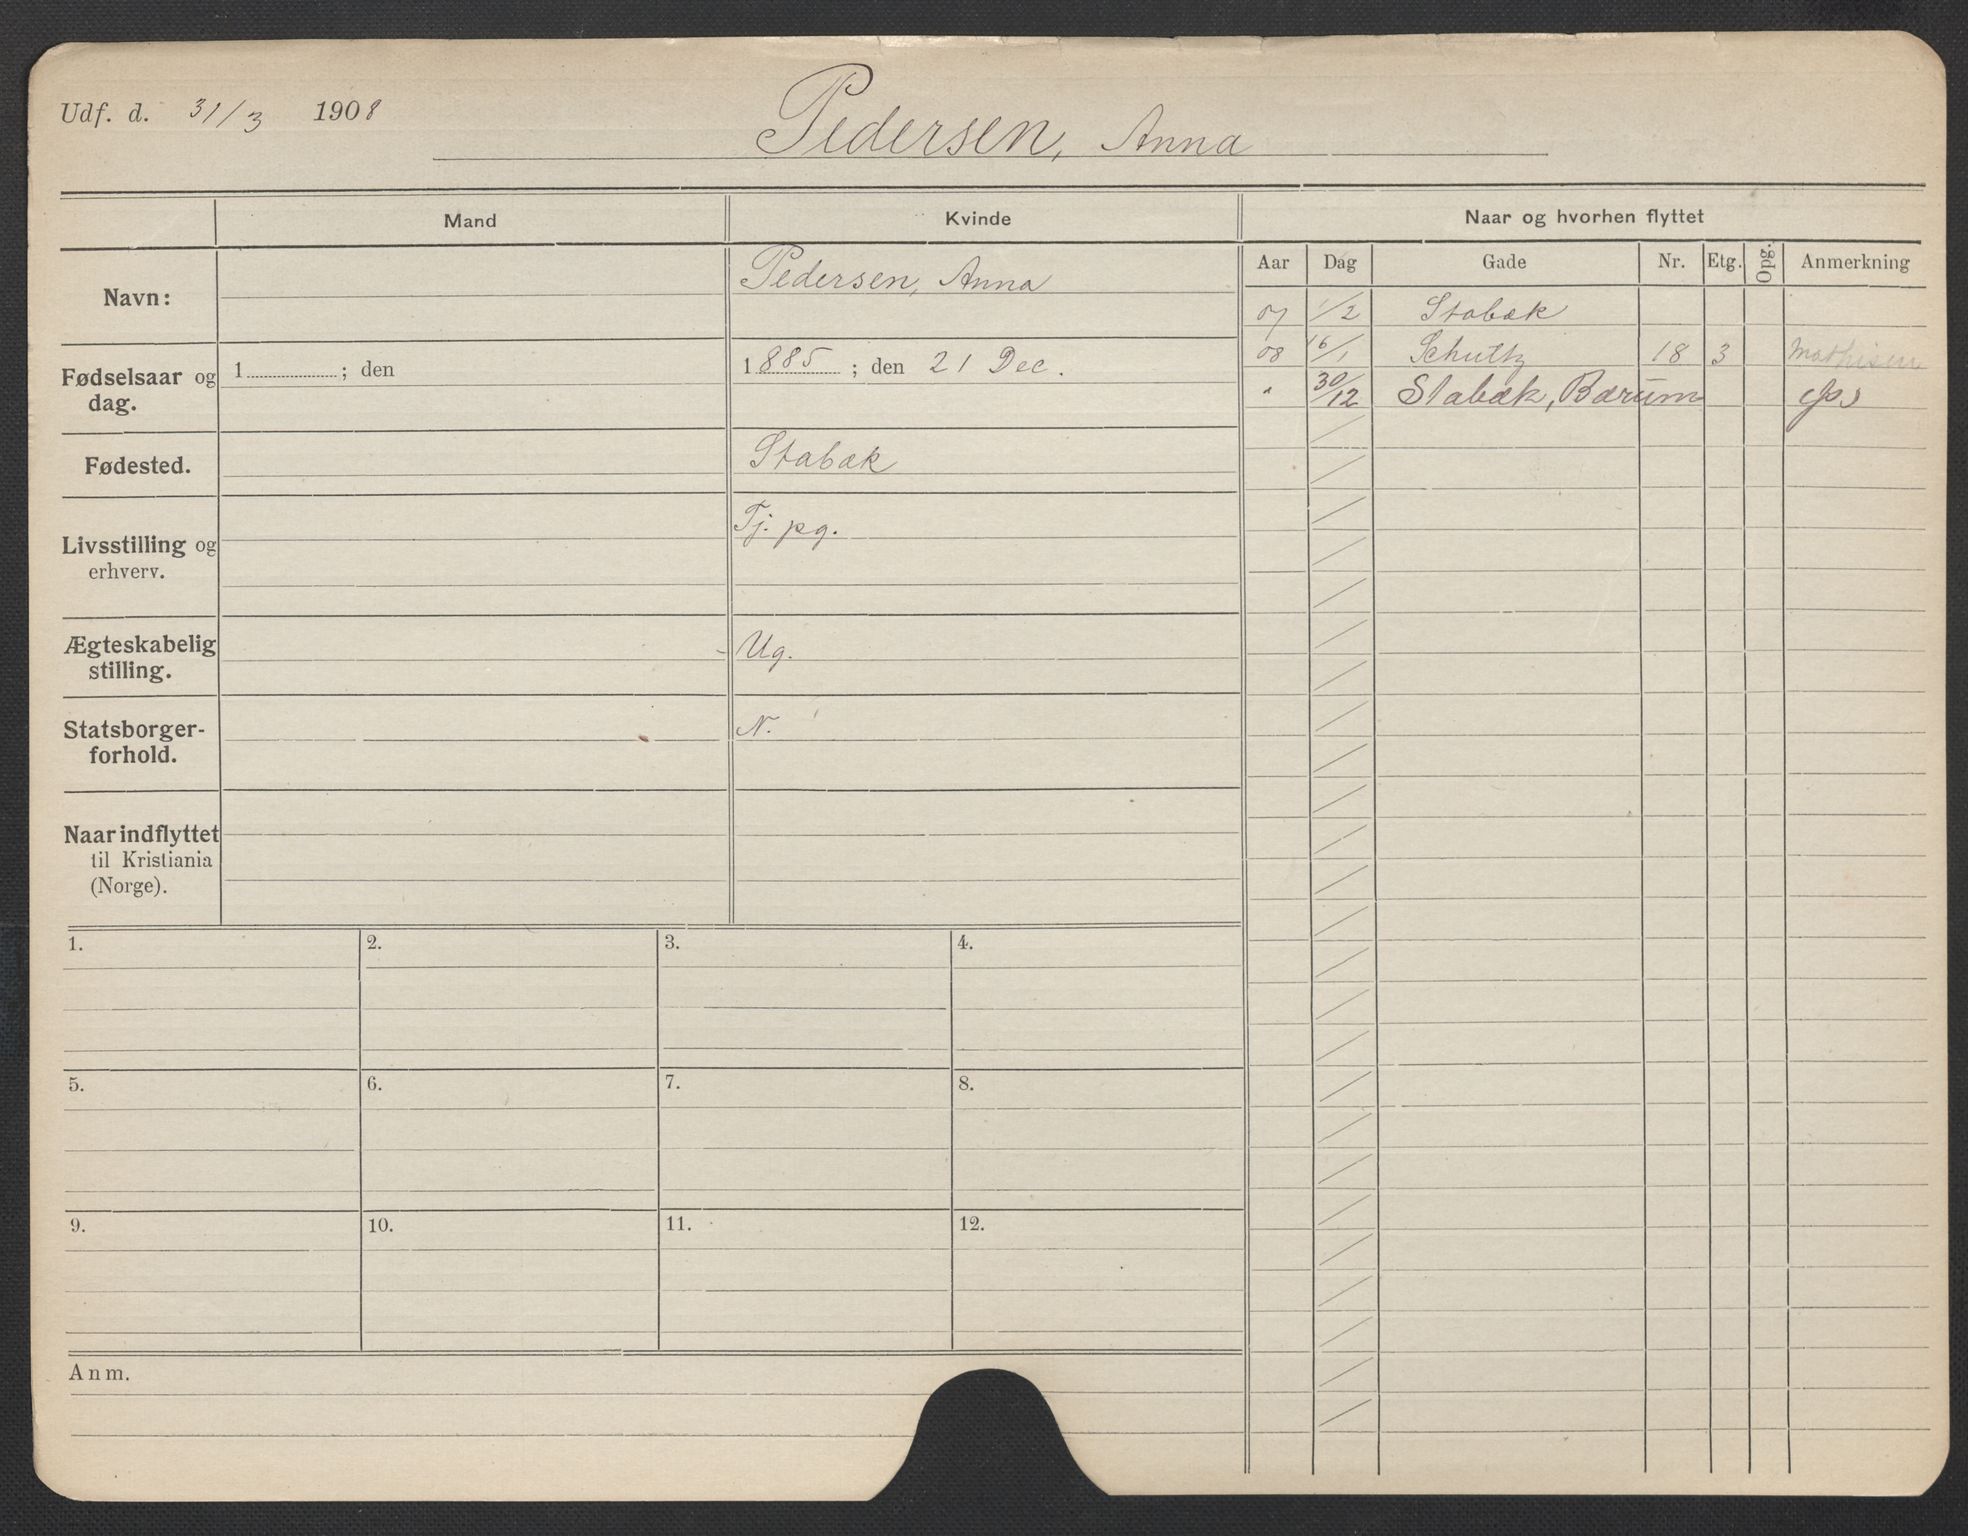 Udf. d. 31/3 1908
Pedersen, Anna
Mand
Kvinde
Naar og hvorhen flyttet
Aar Dag Gade Nr. Etg. Opg. Anmerkning
Navn:
Pedersen, Anna
Fødselsaar og dag.
1 ; den
1885 ; den 21 Dec.
Fødested.
Stabæk
Livsstilling og erhverv.
Tj. pg.
Ægteskabelig stilling.
Ug.
Statsborger-
forhold.
N.
Naar indflyttet
til Kristiania
(Norge).
07 1/2 Stabæk
08 16/1 Schultz 18 3 Mathisen
" 30/12 Stabæk, Bærum
1. 2. 3. 4.
5. 6. 7. 8.
9. 10. 11. 12.
Anm.